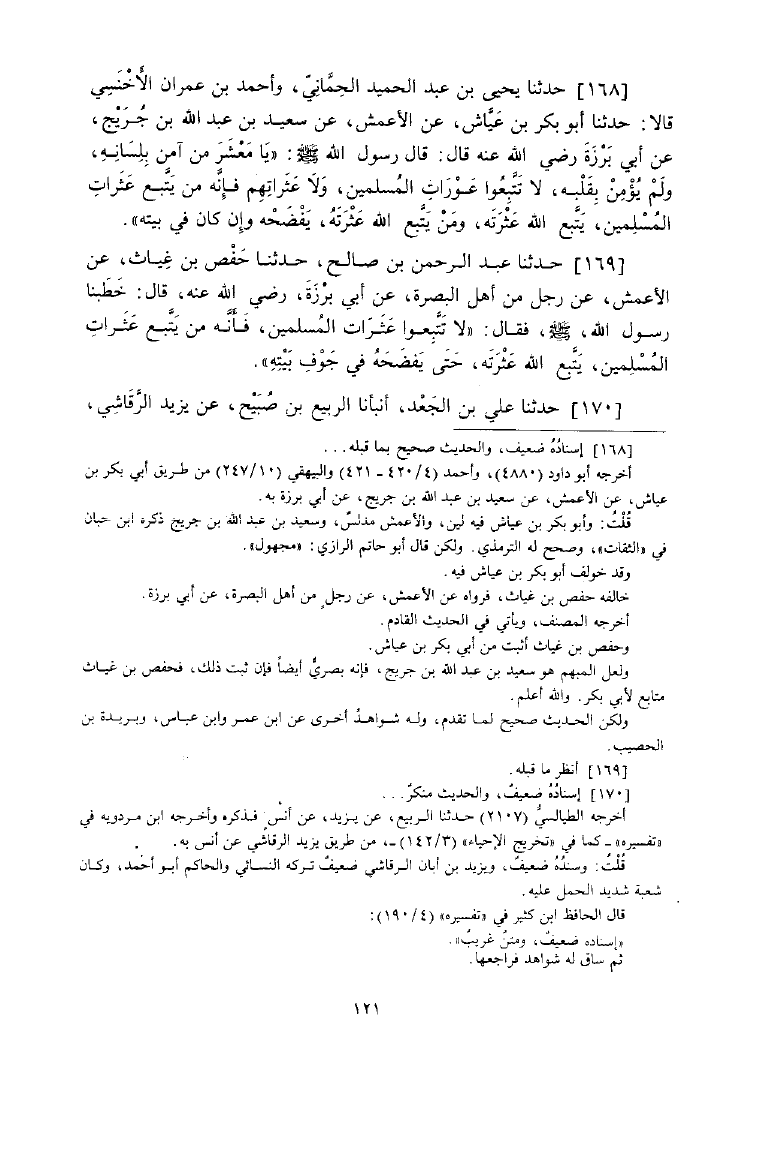 [١٦٨] حدثنا يحيى بن عبد الحميد الحِمَّانِيّ، وأحمد بن عمران الأَخْنَسِي
قالا: حدثنا أبو بكر بن عَيَّاش، عن الأعمش، عن سعيد بن عبد الله بن جُرَيْج،
عن أبي بَرْزَةَ رضي الله عنه قال: قال رسول الله ﷺ: «يَا مَعْشَرَ من آمن بِلِسَانِهِ،
ولَمْ يُؤْمِنْ بِقَلْبِه، لا تَتَّبِعُوا عَوْرَاتِ المُسلمين، وَلَا عَثَراتِهِم فَإِنَّه من يَتَّبِع عَثَراتِ
المُسْلِمين، يَتَّبع الله عَثْرَتَه، ومَنْ يَتَّبِع الله عَثْرَتَهُ، يَفْضَحْه وإِن كان في بيته».
[١٦٩] حدثنا عبد الرحمن بن صالح، حدثنا حَفْص بن غِياث، عن
الأعمش، عن رجل من أهل البصرة، عن أبي بَرْزَةَ، رضي الله عنه، قال: خَطَبنا
رسول الله، ﷺ، فقال: «لا تَتَّبِعوا عَثَرَات المُسلمين، فَأَنَّه من يَتَّبِع عَثَراتِ
المُسْلِمين، يَتَّبع الله عَثْرَتَه، حَتَى يَفضَحَهُ في جَوْفِ بَيْتِهِ».
[١٧٠] حدثنا علي بن الجَعْد، أنبأنا الربيع بن صُبَيْح، عن يزيد الرَّقَاشِي،
[١٦٨] إسنادُهُ ضعيف، والحديث صحيح بما قبله...
أخرجه أبو داود (٤٨٨٠)، وأحمد (٤/٤٢٠ ـ ٤٢١) والبيهقي (١٠/٢٤٧) من طريق أبي بكر بن
عياش، عن الأعمش، عن سعيد بن عبد الله بن جريج، عن أبي برزة به.
قُلْتُ: وأبو بكر بن عياش فيه لين، والأعمش مدلسٌ، وسعيد بن عبد الله بن جريج ذكره ابن حبان
في «الثقات»، وصحح له الترمذي. ولكن قال أبو حاتم الرازي: «مجهول».
وقد خولف أبو بكر بن عياش فيه.
خالفه حفص بن غياث، فرواه عن الأعمش، عن رجلٍ من أهل البصرة، عن أبي برزة.
أخرجه المصنف، ويأتي في الحديث القادم.
وحفص بن غياث أثبت من أبي بكر بن عياش.
ولعل المبهم هو سعيد بن عبد الله بن جريج، فإنه بصريٌّ أيضاً فإن ثبت ذلك، فحفص بن غياث
متابع لأبي بكر. والله أعلم.
ولكن الحديث صحيح لما تقدم، وله شواهدُ أخرى عن ابن عمر وابن عباس، وبريدة بن
الحصيب.
[١٦٩] أنظر ما قبله.
[١٧٠] إسنادُهُ ضعيفٌ، والحديث منكرٌ...
أخرجه الطيالسيُّ (٢١٠٧) حدثنا الربيع، عن يزيد، عن أنسٍ فذكره وأخرجه ابن مردويه في
«تفسيره» ـ كما في «تخريج الإحياء» (٣/١٤٢) ـ، من طريق يزيد الرقاشي عن أنس به.
قُلْتُ: وسندُهُ ضعيفٌ، ويزيد بن أبان الرقاشي ضعيفٌ تركه النسائي والحاكم أبو أحمد، وكان
شعبة شديد الحمل عليه.
قال الحافظ ابن كثير في «تفسيره» (٤/١٩٠):
«إسناده ضعيفٌ، ومتنٌ غريبٌ».
ثم ساق له شواهد فراجعها.
١٢١